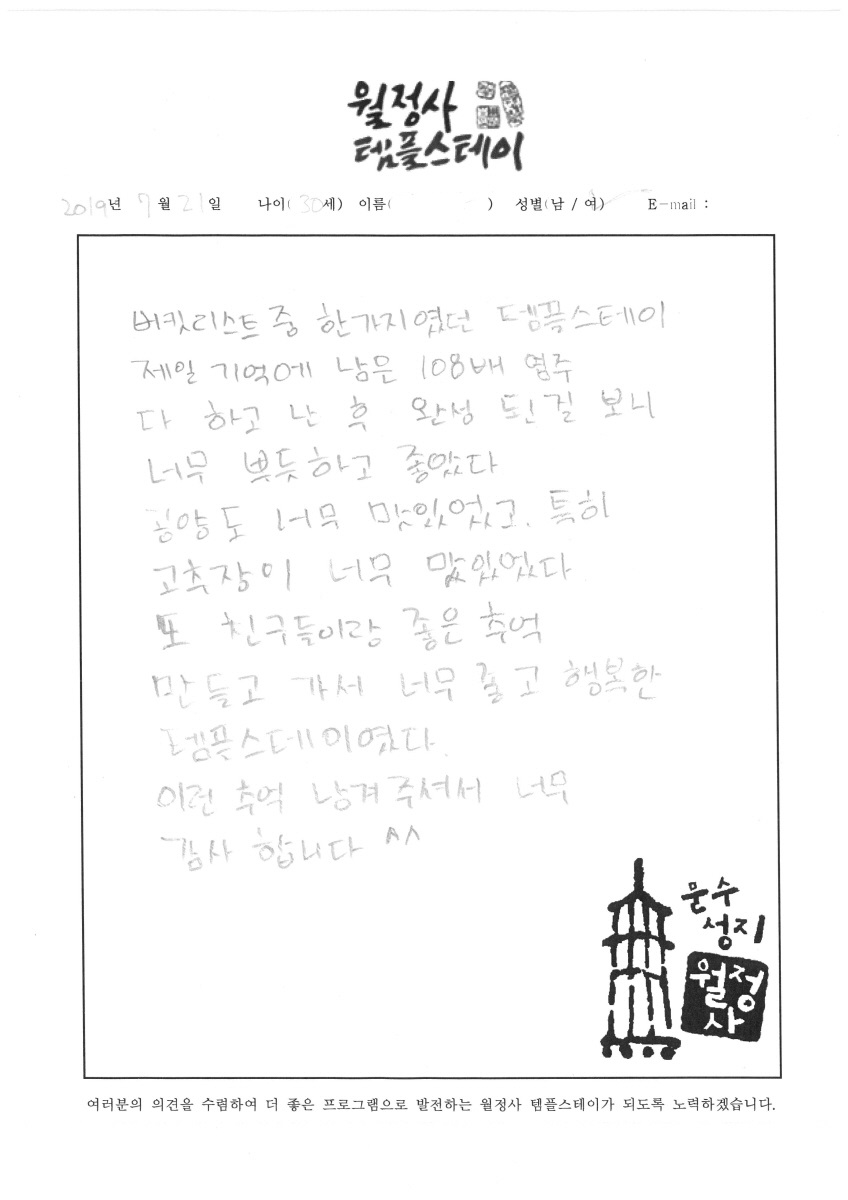 월정사
템플스테이
2019년 7월 21일 나이( 30세) 이름( ) 성별(남 / 여) E-mail :
버킷리스트 중 한가지였던 템플스테이
제일 기억에 남은 108배 염주
다 하고 난 후 완성 된걸 보니
너무 뿌듯하고 좋았다
공양도 너무 맛있었고, 특히
고추장이 너무 맜있었다
또 친구들이랑 좋은 추억
만들고 가서 너무 좋고 행복한
템플스테이였다.
이런 추억 남겨주셔서 너무
감사 합니다 ^^
문수
성지
월정
사
여러분의 의견을 수렴하여 더 좋은 프로그램으로 발전하는 월정사 템플스테이가 되도록 노력하겠습니다.